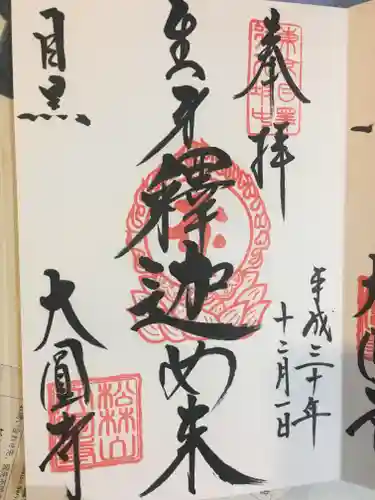 奉拝
平成三十年
十二月一日
生身釋迦如来
目黒
大圓寺
松林山